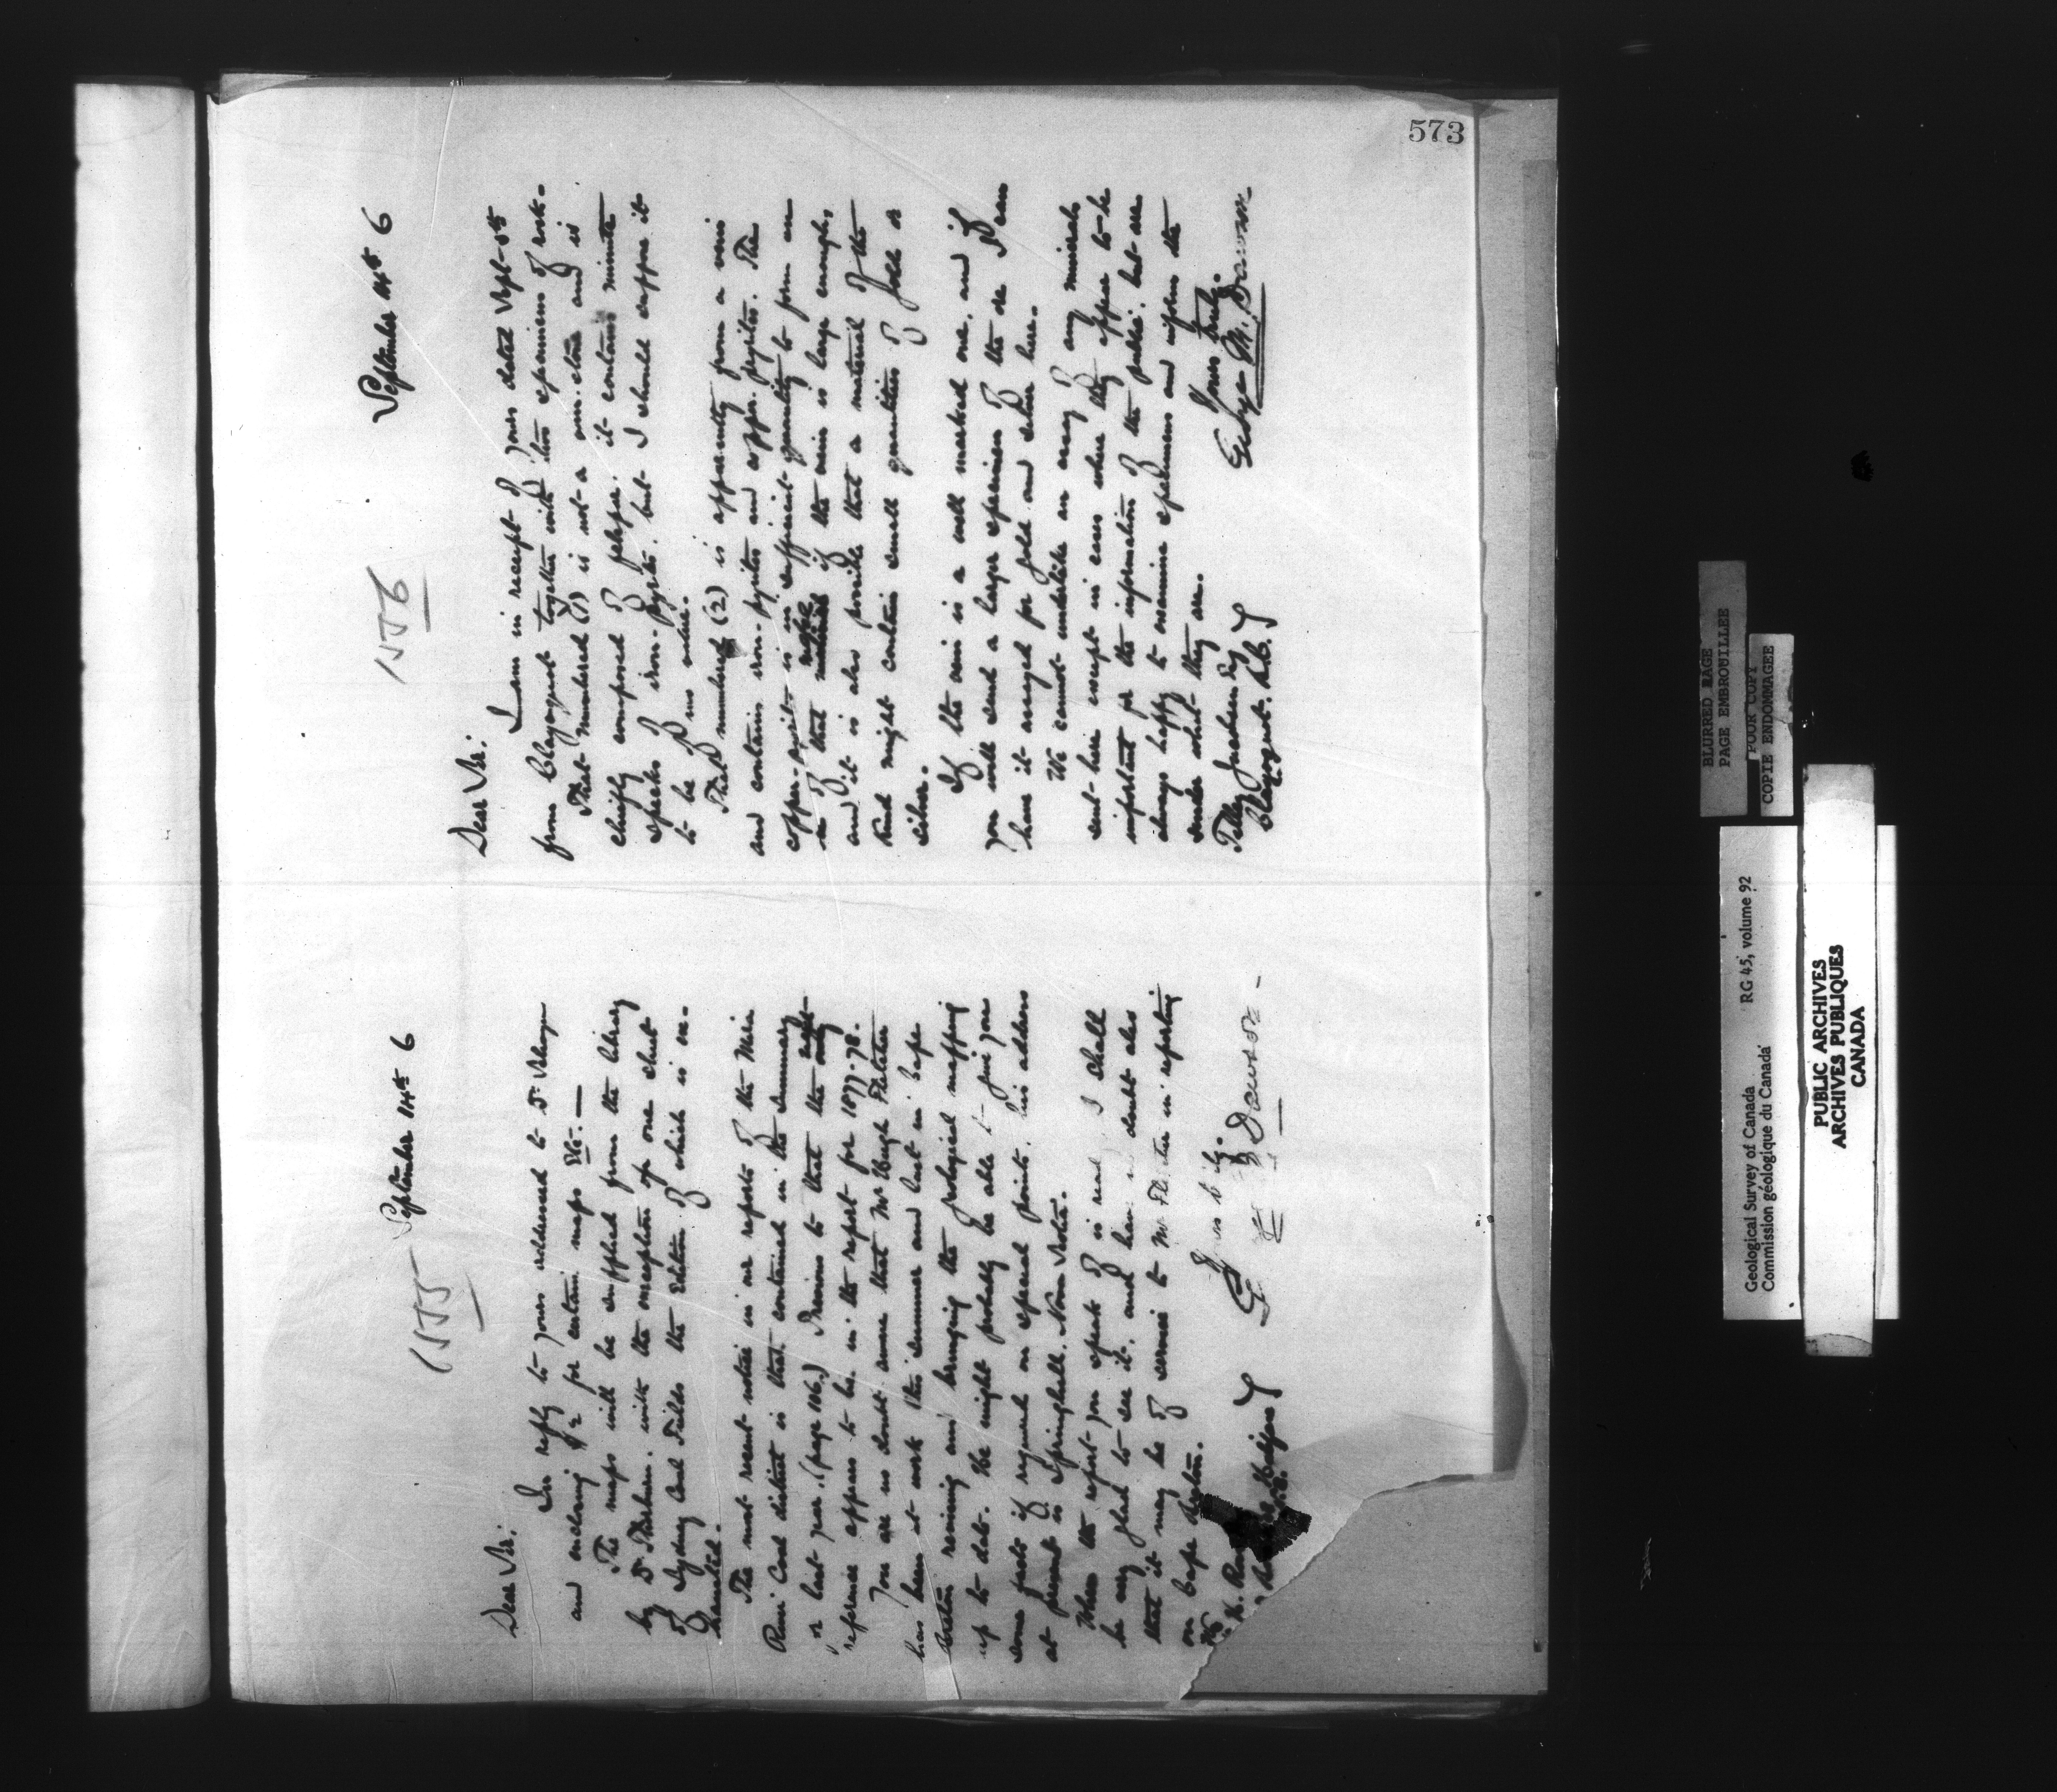 573
1155
September 14th 6
Dear Sir:
In reply to yours addressed to Dr Selwyn
and enclosing $2 for certain maps &c. —
The maps will be supplied from the library
by Dr Thorburn. with the exception of one sheet
of Sydney Coal Fields the Edition of which is ex-
hausted.
The most recent notice in our reports of the
Coal district is that contained in the Summary
or last year. (page 106.) Previous to that the only
reference appears to be in the report for 1877-78.
You are no doubt aware that Mr Hugh Fletcher
has been at work this summer and last in Cape
Breton revising and bringing the geological mapping
up to date. He might probably be able to give you
some facts if required on special points. his address
at present is Springhill. Nova Scotia.
When the report you speak of is I shall
be very glad to see it. and have doubt also
that it may be of service to Mr in reporting
on Cape Breton.
Dawson
1156
September 14th 6
Dear Sir:
I am in receipt of yours dated Sept. 5th
from Clayoquot together with two specimens of rock.
That numbered (1) is not a and is
chiefly composed of felspar. it contains minute
specks of iron-pyrites. but I should suppose it
to be of no value.
That numbered (2) is apparently from a vein
and contains iron-pyrites and copper-pyrites. The
copper-pyrites is in sufficient quantity to form an
ore of that if the vein is large enough,
and it is also possible that a material of the
kind might contain small quantities of gold or
silver.
If the vein is a well marked one, and if
you will send a larger specimen of the ore I can
have it assayed for gold and silver here.
We cannot undertake an assay of any minerals
sent here except in cases where they appear to be
important for the information of the public. but are
always happy to examine specimens and inform the
sender what they are.
Yours truly.
George M. Dawson
Clayoquot. B.C.
BLURRED PAGE
PAGE EMBROUILLEE
POUR COPY
COPIE ENDOMMAGEE
Geological Survey of Canada RG 45, volume 92
Commission géologique du Canada
PUBLIC ARCHIVES
ARCHIVES PUBLIQUES
CANADA